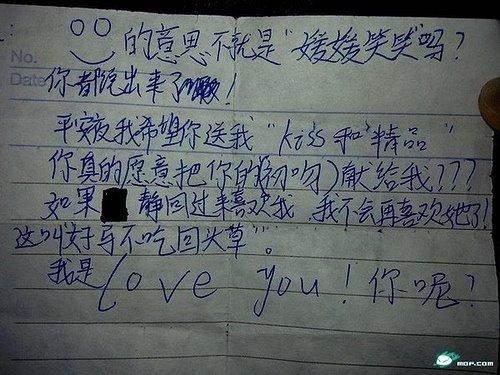 No.
Date
的意思不就是"媛媛笑笑"吗？
你都说出来了啊！
平安夜我希望你送我"kiss和精品"
你真的愿意把你的(初吻)献给我???
如果 静回过来喜欢我，我不会再喜欢她了!
这叫好马不吃回头草"。
我是love you！你呢？
MOP.COM